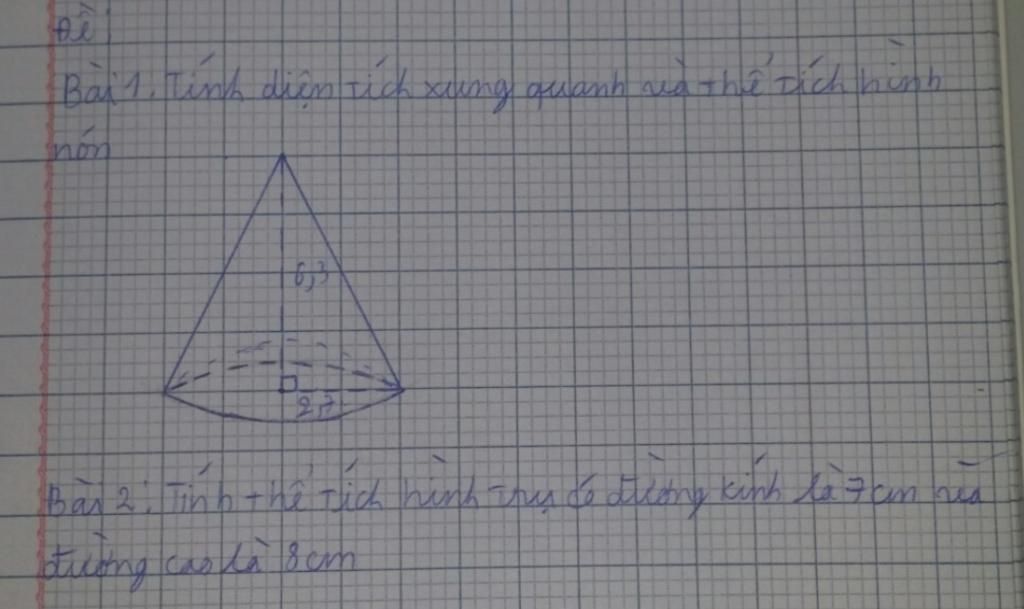 Đề
Bài 1. Tính diện tích xung quanh và thể tích hình
nón
6,3
2,7
Bài 2: Tính thể tích hình trụ có đường kính là 7cm và
đường cao là 8cm